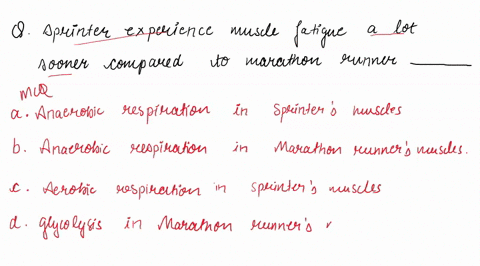 Q. Sprinter experience muscle fatigue a lot
sooner compared to marathon runner ______
MCQ
a. Anaerobic respiration in Sprinter's muscles
b. Anaerobic respiration in Marathon runner's muscles.
c. Aerobic respiration in sprinter's muscles
d. glycolysis in Marathon runner's